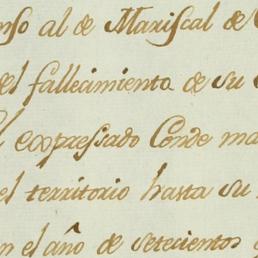 nso al de Mariscal de
del fallecimiento de su
el expressado Conde ma
el territorio hasta su
n el año de setecientos